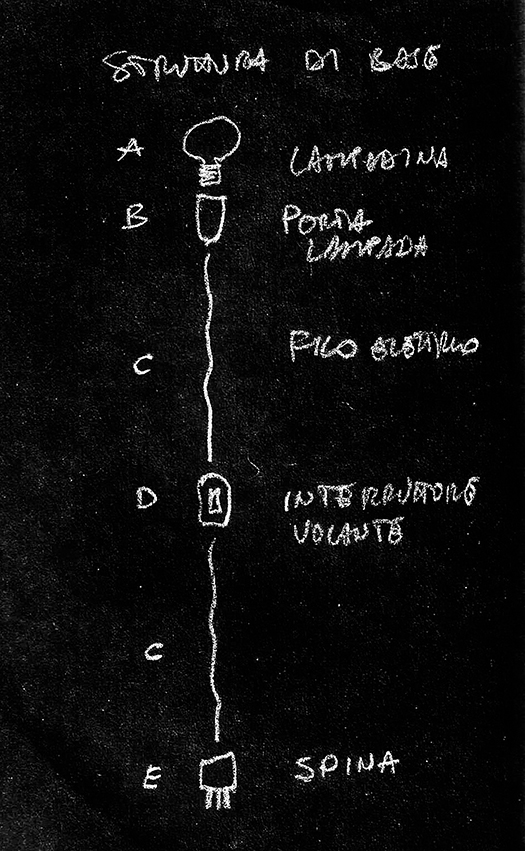 STRUTTURA DI BASE
A LAMPADINA
B PORTA
LAMPADA
C FILO ELETTRICO
D INTERRUTTORE
VOLANTE
C
E SPINA